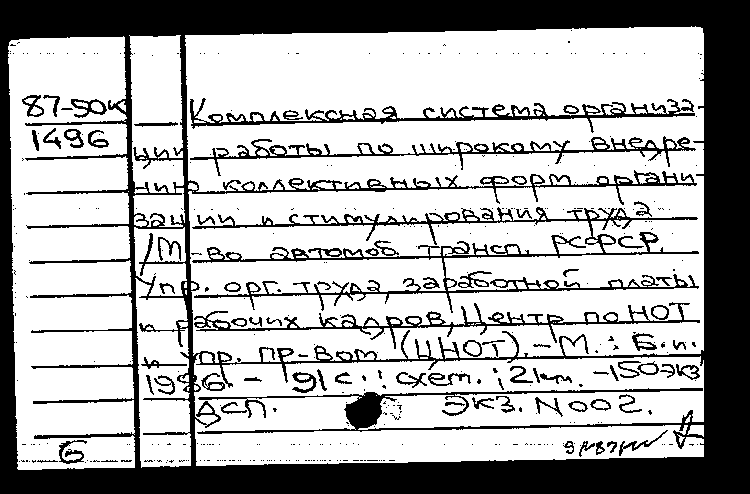 87-50к Комплексная система организа-
1496 ции работы по широкому внедре-
нию коллективных форм органи-
зации и стимулирования труда
/М-во автомоб. трансп. РСФСР,
Упр. орг. труда, заработной платы
и рабочих кадров, Центр по НОТ
и упр. пр-вом (ЦНОТ). - М.: Б.и.
1986. - 91 с.: схем.; 21 см. - 150 экз.
Дсп. Экз. N 002.
Б